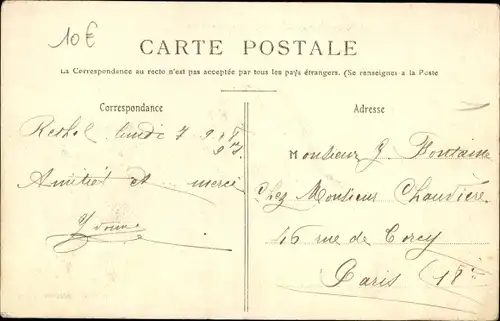 10€
CARTE POSTALE
La Correspondance au recto n'est pas acceptée par tous les pays étrangers. (Se renseigner à la Poste
Correspondance
Adresse
Rethel lundi 7 9
Amitiés et merci
Yvonne
Monsieur J. Fontaine
Chez Monsieur Chaudière
46 rue de Torcy
Paris (18e